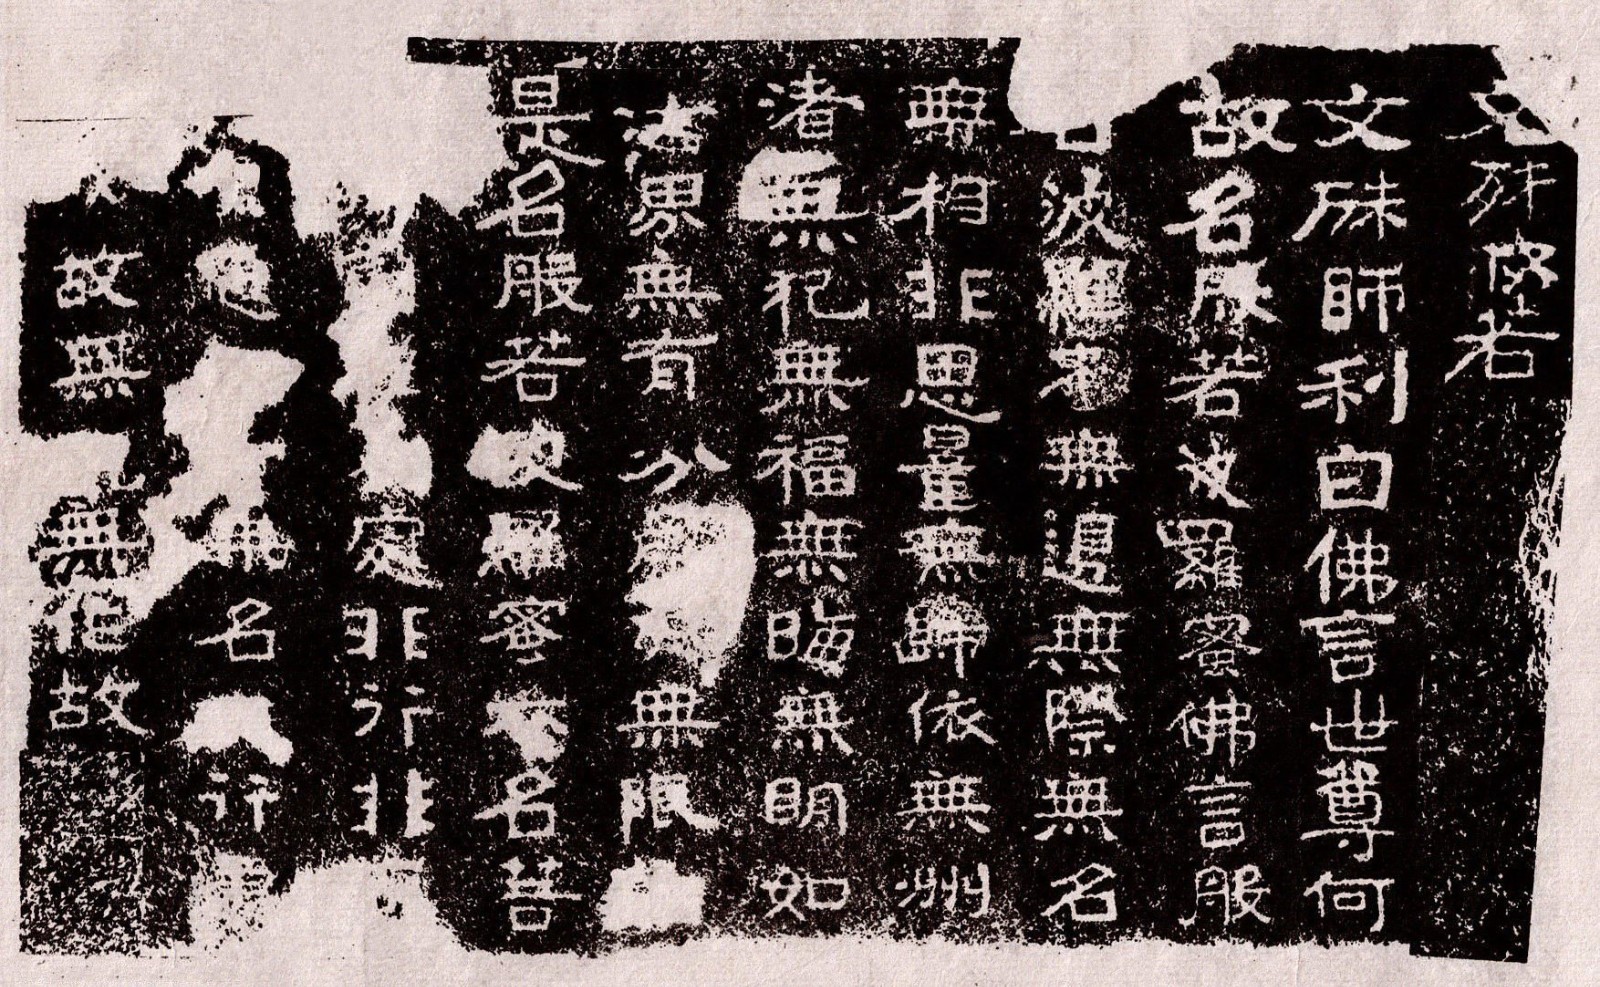 文殊般若
文殊師利白佛言世尊何
故名般若波羅蜜佛言般
若波羅蜜無邊無際無名
無相非思量無歸依無洲
渚無犯無福無晦無明如
法界無有分齊亦無限數
是名般若波羅蜜亦名菩
處非行非
無名行
故無無作故